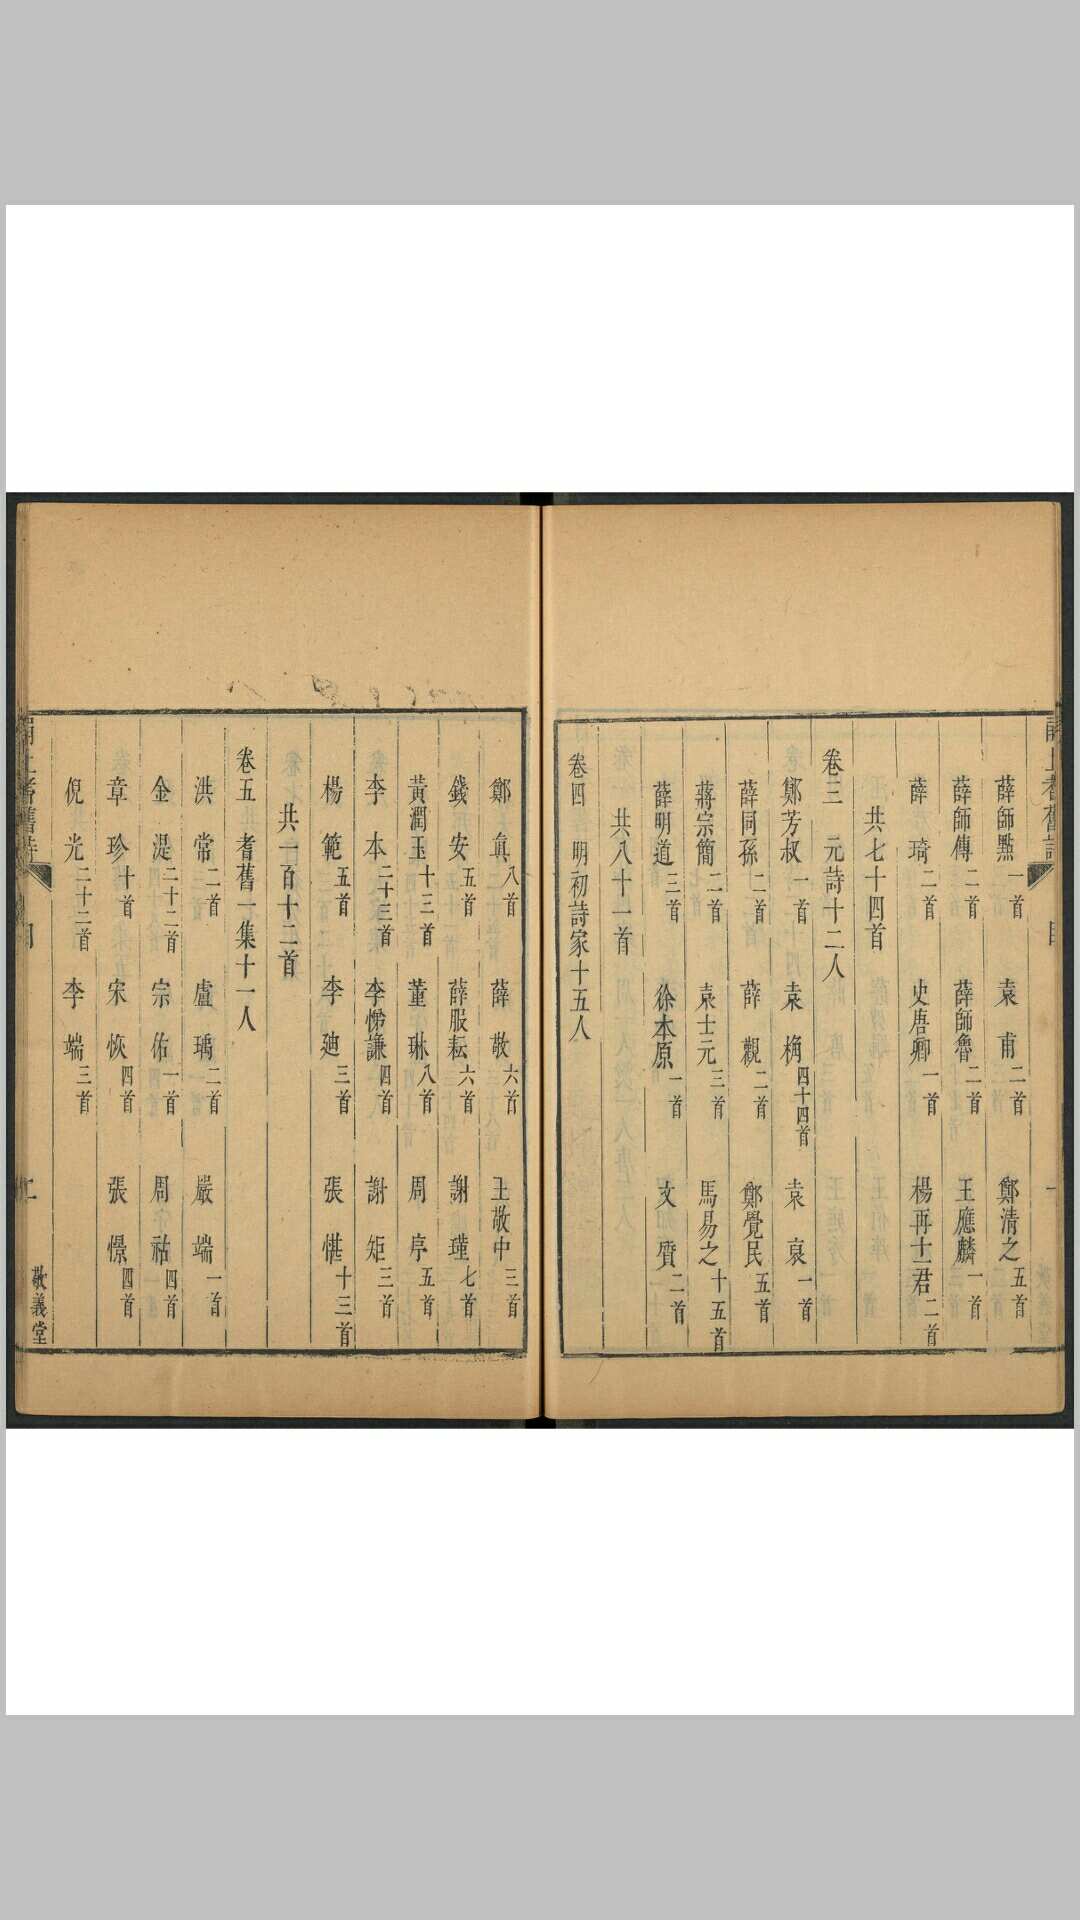 薛師㸃一首　袁甫二首　鄭清之五首
薛師傳二首　薛師魯二首　王應麟一首
薛琦二首　史唐卿一首　楊再十二君二首
共七十四首
卷三　元詩十二人
鄭芳叔一首　袁桷四十四首　袁裒一首
薛同孫二首　薛觀二首　鄭覺民五首
蔣宗簡二首　袁士元三首　馬易之十五首
薛明道三首　徐本原一首　文質二首
共八十一首
卷四　明初詩家十五人
鄭真八首　薛敬六首　王敬中三首
錢安五首　薛服耘六首　謝瑾七首
黃潤玉十三首　董琳八首　周序五首
李本二十三首　李悌謙四首　謝矩三首
楊範五首　李廸三首　張楷十三首
共一百十二首
卷五　耆舊一集十一人
洪常二首　盧瑀二首　嚴端一首
金湜二十二首　宗佑一首　周祜四首
章珍十首　宋恢四首　張憬四首
倪光二十二首　李端三首
上耆舊詩　目　二　敬義堂